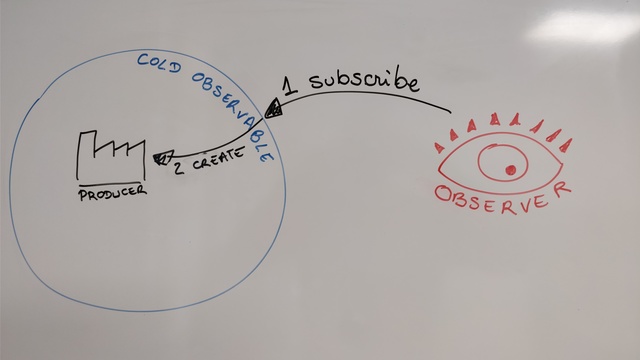 COLD OBSERVABLE
1 subscribe
2 CREATE
PRODUCER
OBSERVER